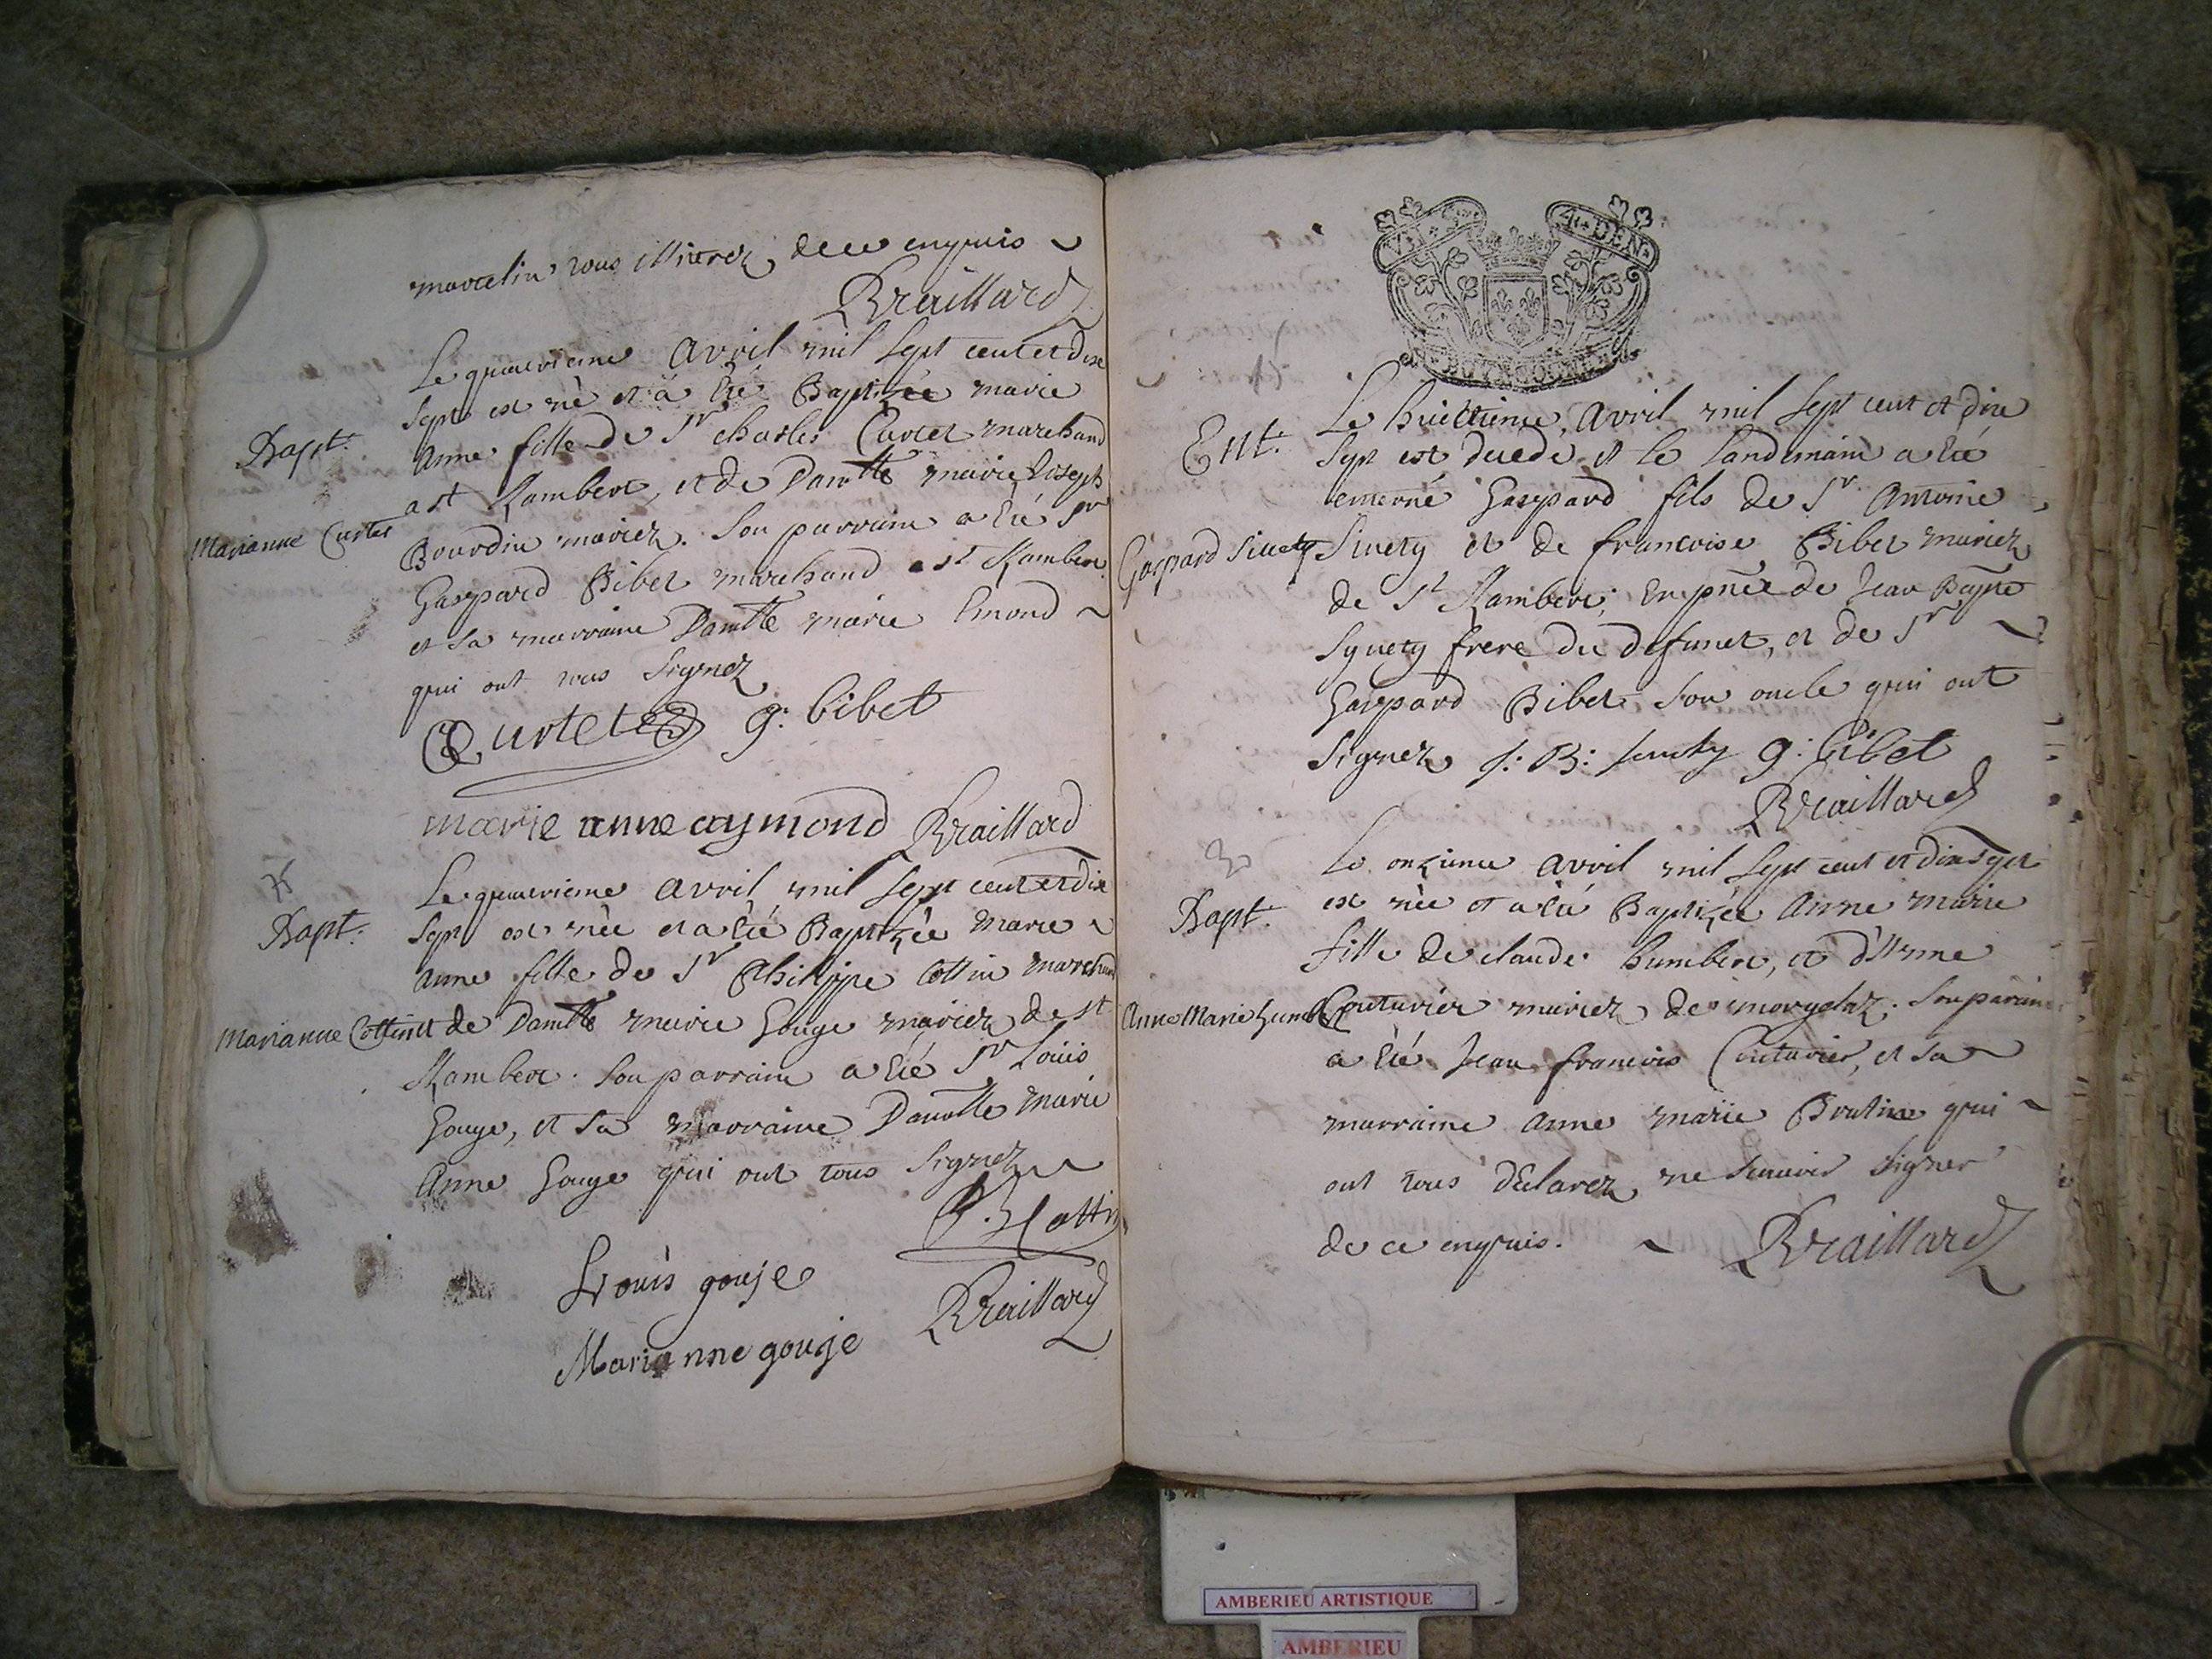 marcelin tous illitterez de ce enquis
Braillard
Le quatrieme avril mil sept cent et dix
sept est né et a été Baptizée marie
Bapt.
anne fille de Sr charles Curtet marchand
a st Rambert, et de Damlle marie Joseph
Marianne Curtet
Bourdin mariez. Son parrain a été Sr
Gaspard Bibet marchand a st Rambert
et sa marraine Damlle marie Emond
qui ont tous signez
Curtet g: bibet
marie anne aymond Braillard
Le quatrieme avril mil sept cent et dix
Bapt.
sept est née et a été Baptizée marie
anne fille de Sr Philippe Cottin marchand
Marianne Cottin
et de Damlle marie Gouge mariez de st
Rambert. Son parrain a été Sr Louis
Gouge, et sa marraine Damlle marie
Anne Gouge qui ont tous signez
P. Cottin
Louis gouje
Braillard
Marianne gouje
4 DEN
BOURGOGNE
Le huictieme avril mil sept cent et dix
Ent.
sept est decedé et le landemain a été
enterré Gaspard fils de Sr Antoine
Gaspard Sivety
Sivety et de francoise Bibet mariez
de St Rambert; En pnce de Jean Bapte
Syvety frere du defunct, et de Sr
Gaspard Bibet son oncle qui ont
signez J: B: g: bibet
Braillard
Le onzieme avril mil sept cent et dix sept
Bapt.
est née et a été Baptizée Anne marie
fille de claude humbert, et d'Anne
Anne Marie humbert
Couturier mariez de morgelaz. Son parrain
a été Jean francois Couturier, et sa
marraine anne marie qui
ont tous déclarez ne scavoir signer
de ce enquis. Braillard
AMBERIEU ARTISTIQUE
AMBERIEU